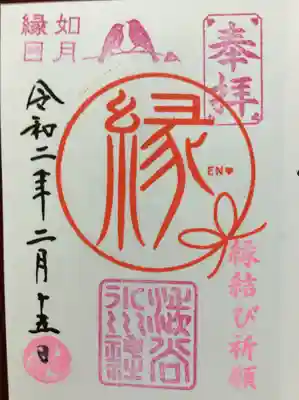 奉拝
如月
縁日
縁
EN♥
縁結び祈願
澁谷
氷川神社
令和二年二月十五日